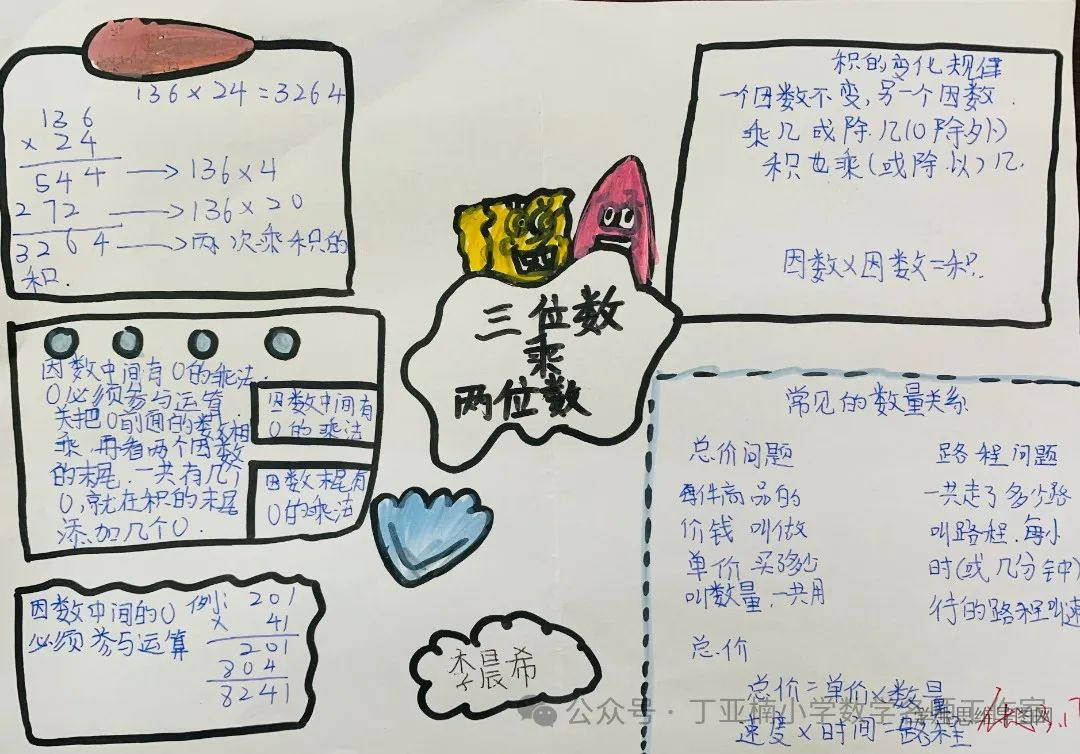 136×24=3264
136
×24
544 → 136×4
272 → 136×20
3264 → 两次乘积的
积.
因数中间有0的乘法.
0必须参与运算.
先把0前面的数相
乘,再看两个因数
的末尾.一共有几个
0,就在积的末尾
添加几个0.
因数中间有
0的乘法
因数末尾有
0的乘法
因数中间的0
必须参与运算
例: 201
× 41
201
804
8241
三位数
乘
两位数
李晨希
积的变化规律
一个因数不变,另一个因数.
乘几或除几(0除外)
积也乘(或除以)几.
因数×因数=积.
常见的数量关系
总价问题
每件商品的
价钱叫做
单价买多少
叫数量,一共用
总价
路程问题
一共走了多少路
叫路程.每小
时(或几分钟)
行的路程叫速
总价=单价×数量
速度×时间=路程
公众号·丁亚楠小学数学